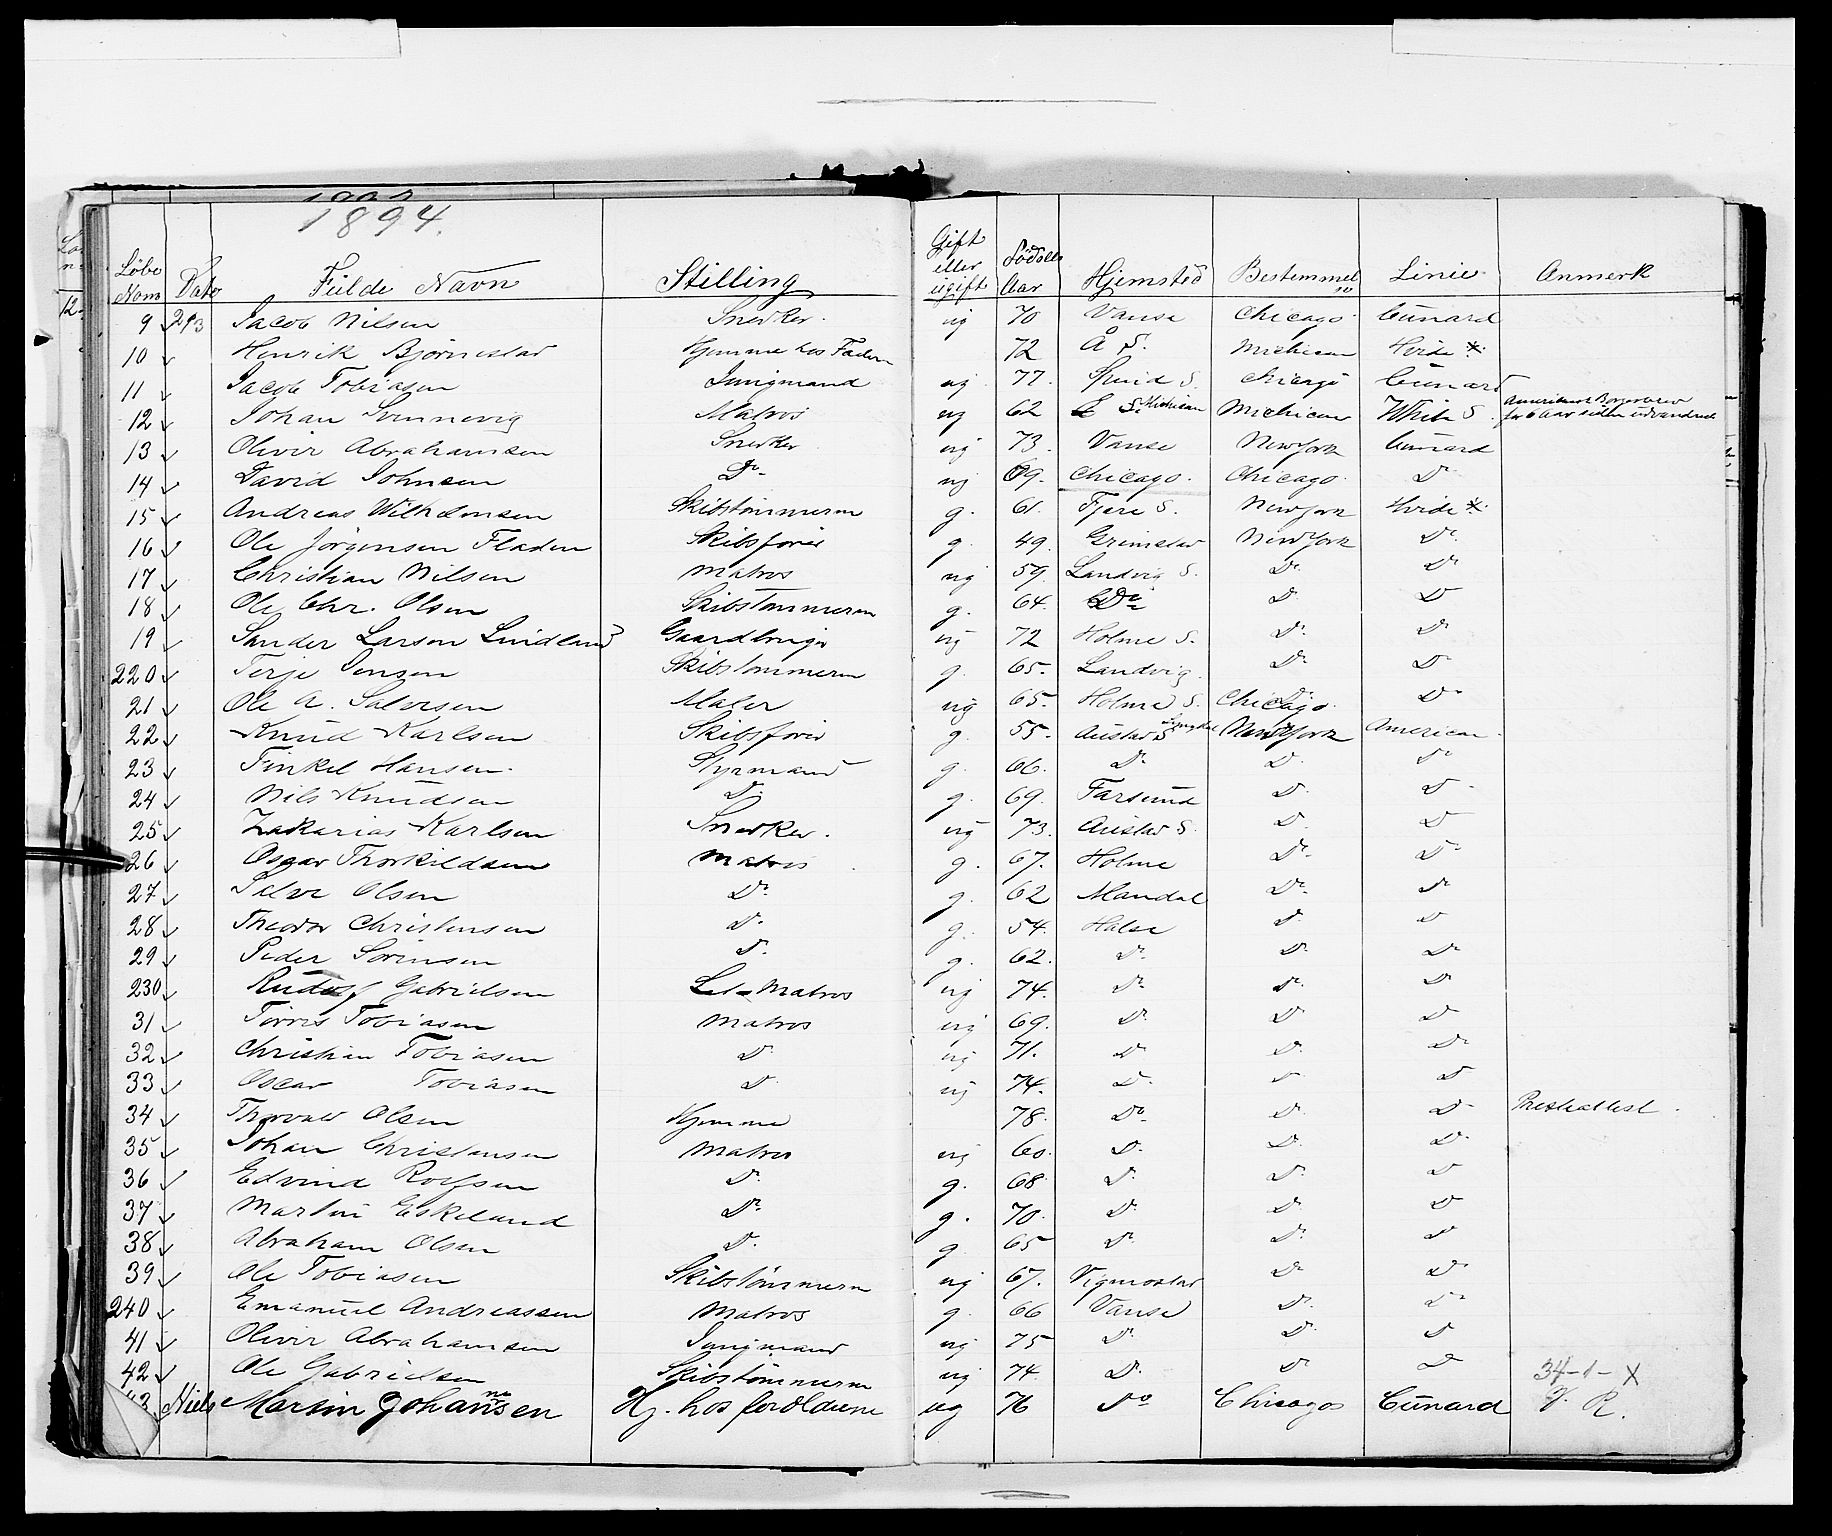 1894.
Löbe Nom Dato Fulde Navn Stilling Gift eller ugift Födsels Aar Hjemsted Bestemmel se Linie Anmerk
9 29/3 Jacob Nilsen Snedker. ug 70 Vanse Chicago. Cunard
10 Henrik Björnestad Hjemme hos Faderen 72 Å S. Michican Hvide *
11 Jacob Tobiasen Jungmand ug 77. Spind S. Chicago Cunard
12 Johan Svennevig Matros ug 62 L S. Michican Michican White S. Amerikansk Borgerbrev for 6 Aar siden udvandret
13 Oliver Abrahamsen Snedker ug 73. Vanse New York Cunard
14 David Johnsen Do ug 69. Chicago. Chicago. Do
15 Andreas Wilhelmsen Skibstömmerm g. 61. Fjere S. New York Hvide *
16 Ole Jörgensen Fladen Skibsförer g. 49. Grimstad New York Do
17 Christian Nilsen Matros ug 59. Landvig S. Do Do
18 Ole Chr. Olsen Skibstömmerm g. 64. Do D D
19 Sander Larsen Lindland Gaardbruger ug 72 Holme S. Do Do
220 Terje Jensen Skibstömmerm g. 65. Landvig. Do Do
21 Ole A. Salvesen Maler ug 65. Holme S. Chicago. Do
22 Knud Karlsen Skibsförer g. 55. Austad S Lyngdal New York American
23 Tinkel Hansen. Styrmand g. 66. Do D. Do
24 Nils Knudsen D. g. 69. Farsund D. D
25 Zakarias Karlsen Snedker. ug 73. Austad S. D. D
26 Osgar Thorkildsen Matros g. 67. Holme Do Do
27 Salve Olsen Do g. 62 Mandal Do Do
28 Theodor Christensen D. g. 54. Halse D. D
29 Peder Sörensen D. g. 62. D. D. Do
230 Rudolf Gabrielsen Let-Matros ug 74. Do Do D
31 Torres Tobiasen Matros ug 69. D. D. D
32 Christian Tobiasen D. ug 71. D. D. Do
33 Oscar Tobiasen D. ug 74. D. D D
34 Thorvald Olsen Hjemme 78. Do D. D
35 Johan Christensen Matros ug 60. D. D. D.
36 Edvind Rolfsen D. g. 68 D. D. D
37 Martin Eskeland Do g. 70. D. D. D
38 Abraham Olsen D. g. 65 D. D. D
39 Ole Tobiasen Skibstömmerm ug 67. Vigmostad Do Do
240 Emanuel Andreassen Matros g. 66 Vanse D. Do
41 Oliver Abrahamsen Jungmand ug 75 D. D. D
42 Ole Gabrielsen Skibstömmerm ug 74. D. Do D 34-1-X
Niels Martin Johannesen Hj. hos foröldrene ug 76 Do Chicago Cunard R.